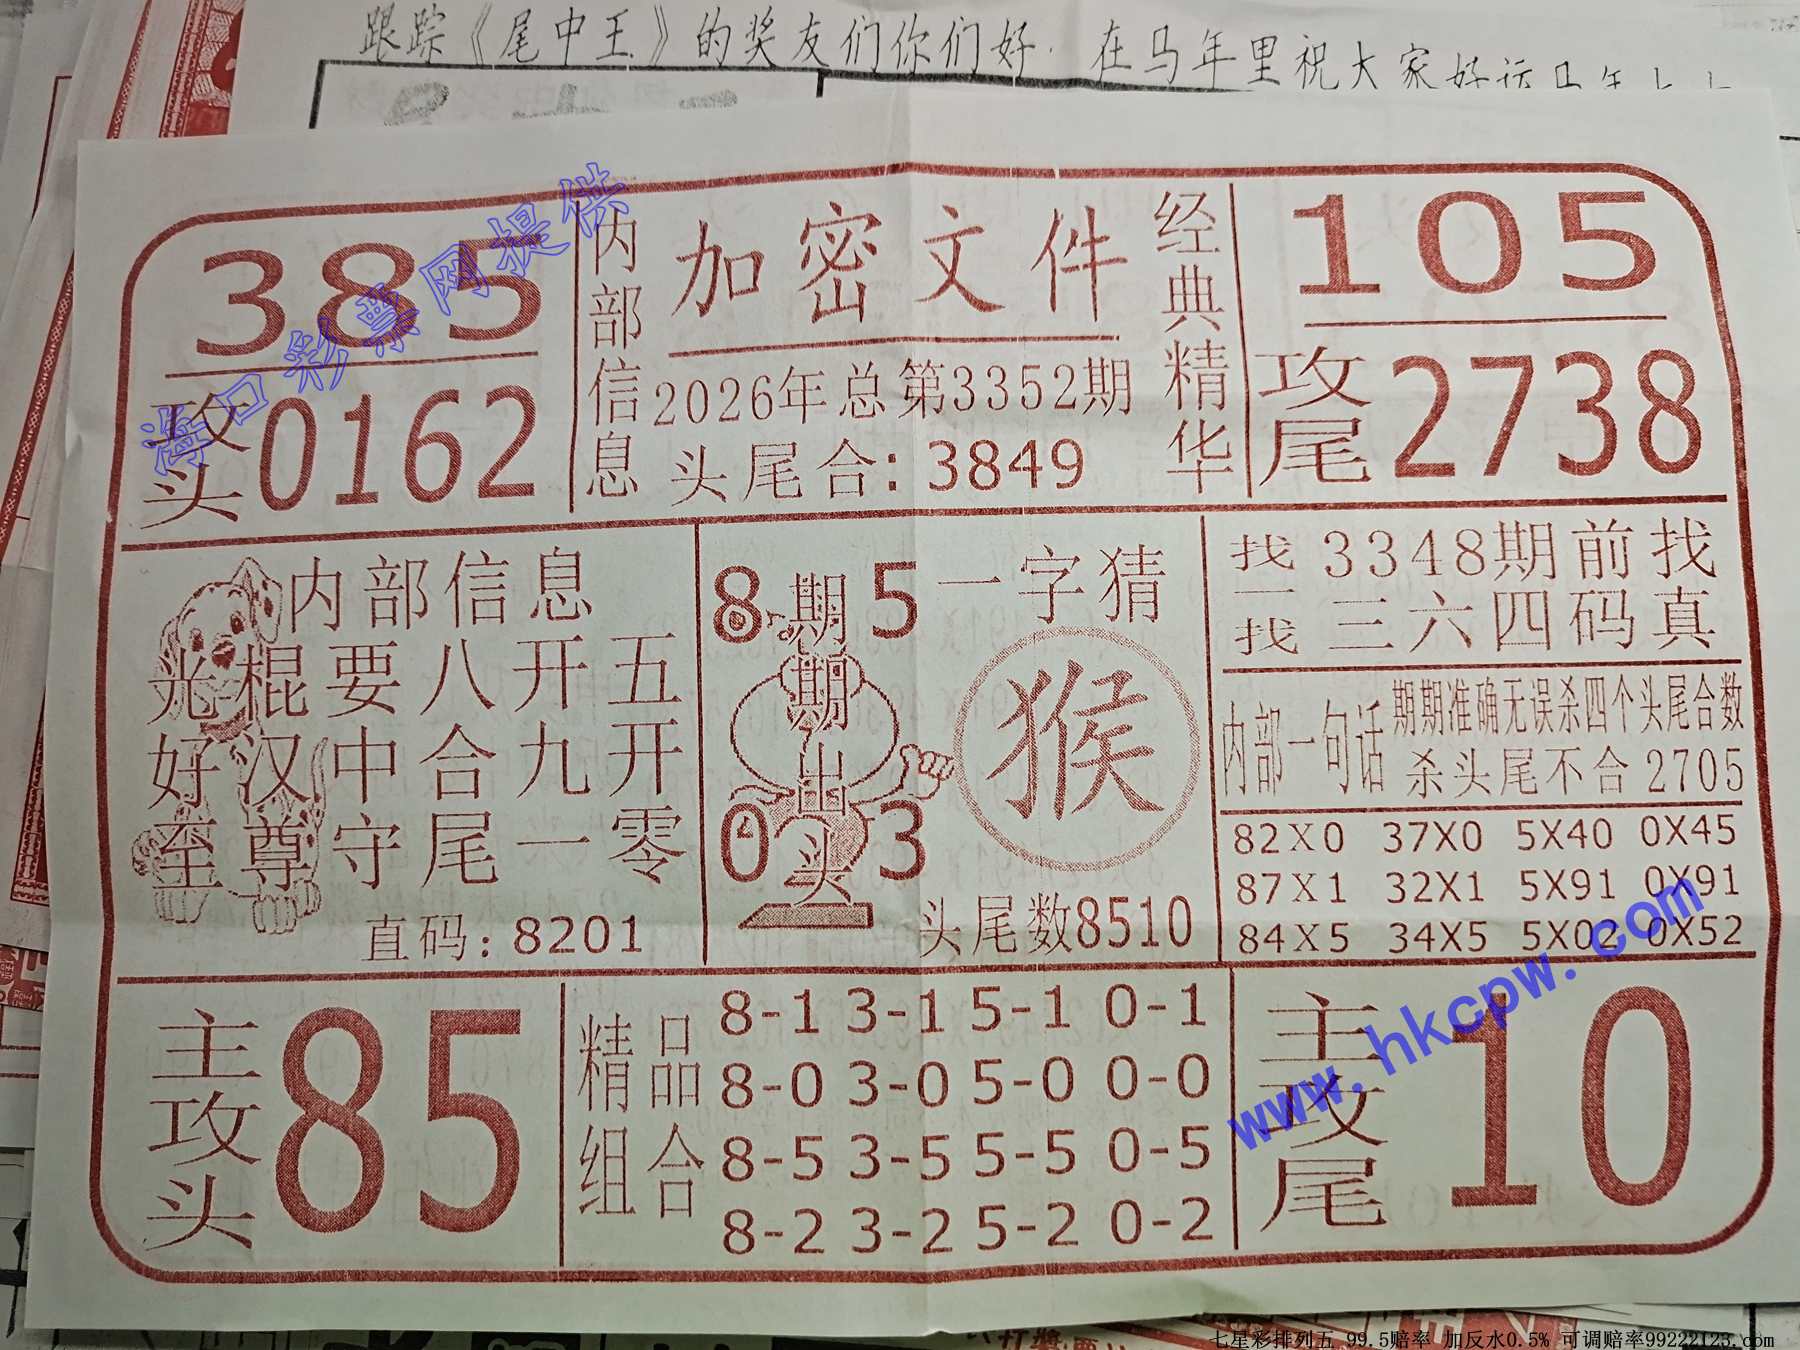 跟踪《尾中王》的奖友们你们好 在马年里祝大家好运
385
攻头 0162
内部信息
加密文件
2026年总第3352期
头尾合: 3849
经典精华
105
攻尾 2738
内部信息
光棍要八开五
好汉中合九开
至尊守尾一零
直码: 8201
8 5
期期出头
0 3
一字猜
猴
头尾数8510
找一找
3348期前找
三六四码真
内部一句话
期期准确无误杀四个头尾合数
杀头尾不合 2705
82X0 37X0 5X40 0X45
87X1 32X1 5X91 0X91
84X5 34X5 5X02 0X52
主攻头 85
精品组合
8-1 3-1 5-1 0-1
8-0 3-0 5-0 0-0
8-5 3-5 5-5 0-5
8-2 3-2 5-2 0-2
主攻尾 10
海口彩票网提供
www.hkcpw.com
七星彩排列五 99.5赔率 加反水0.5% 可调赔率99222123.com